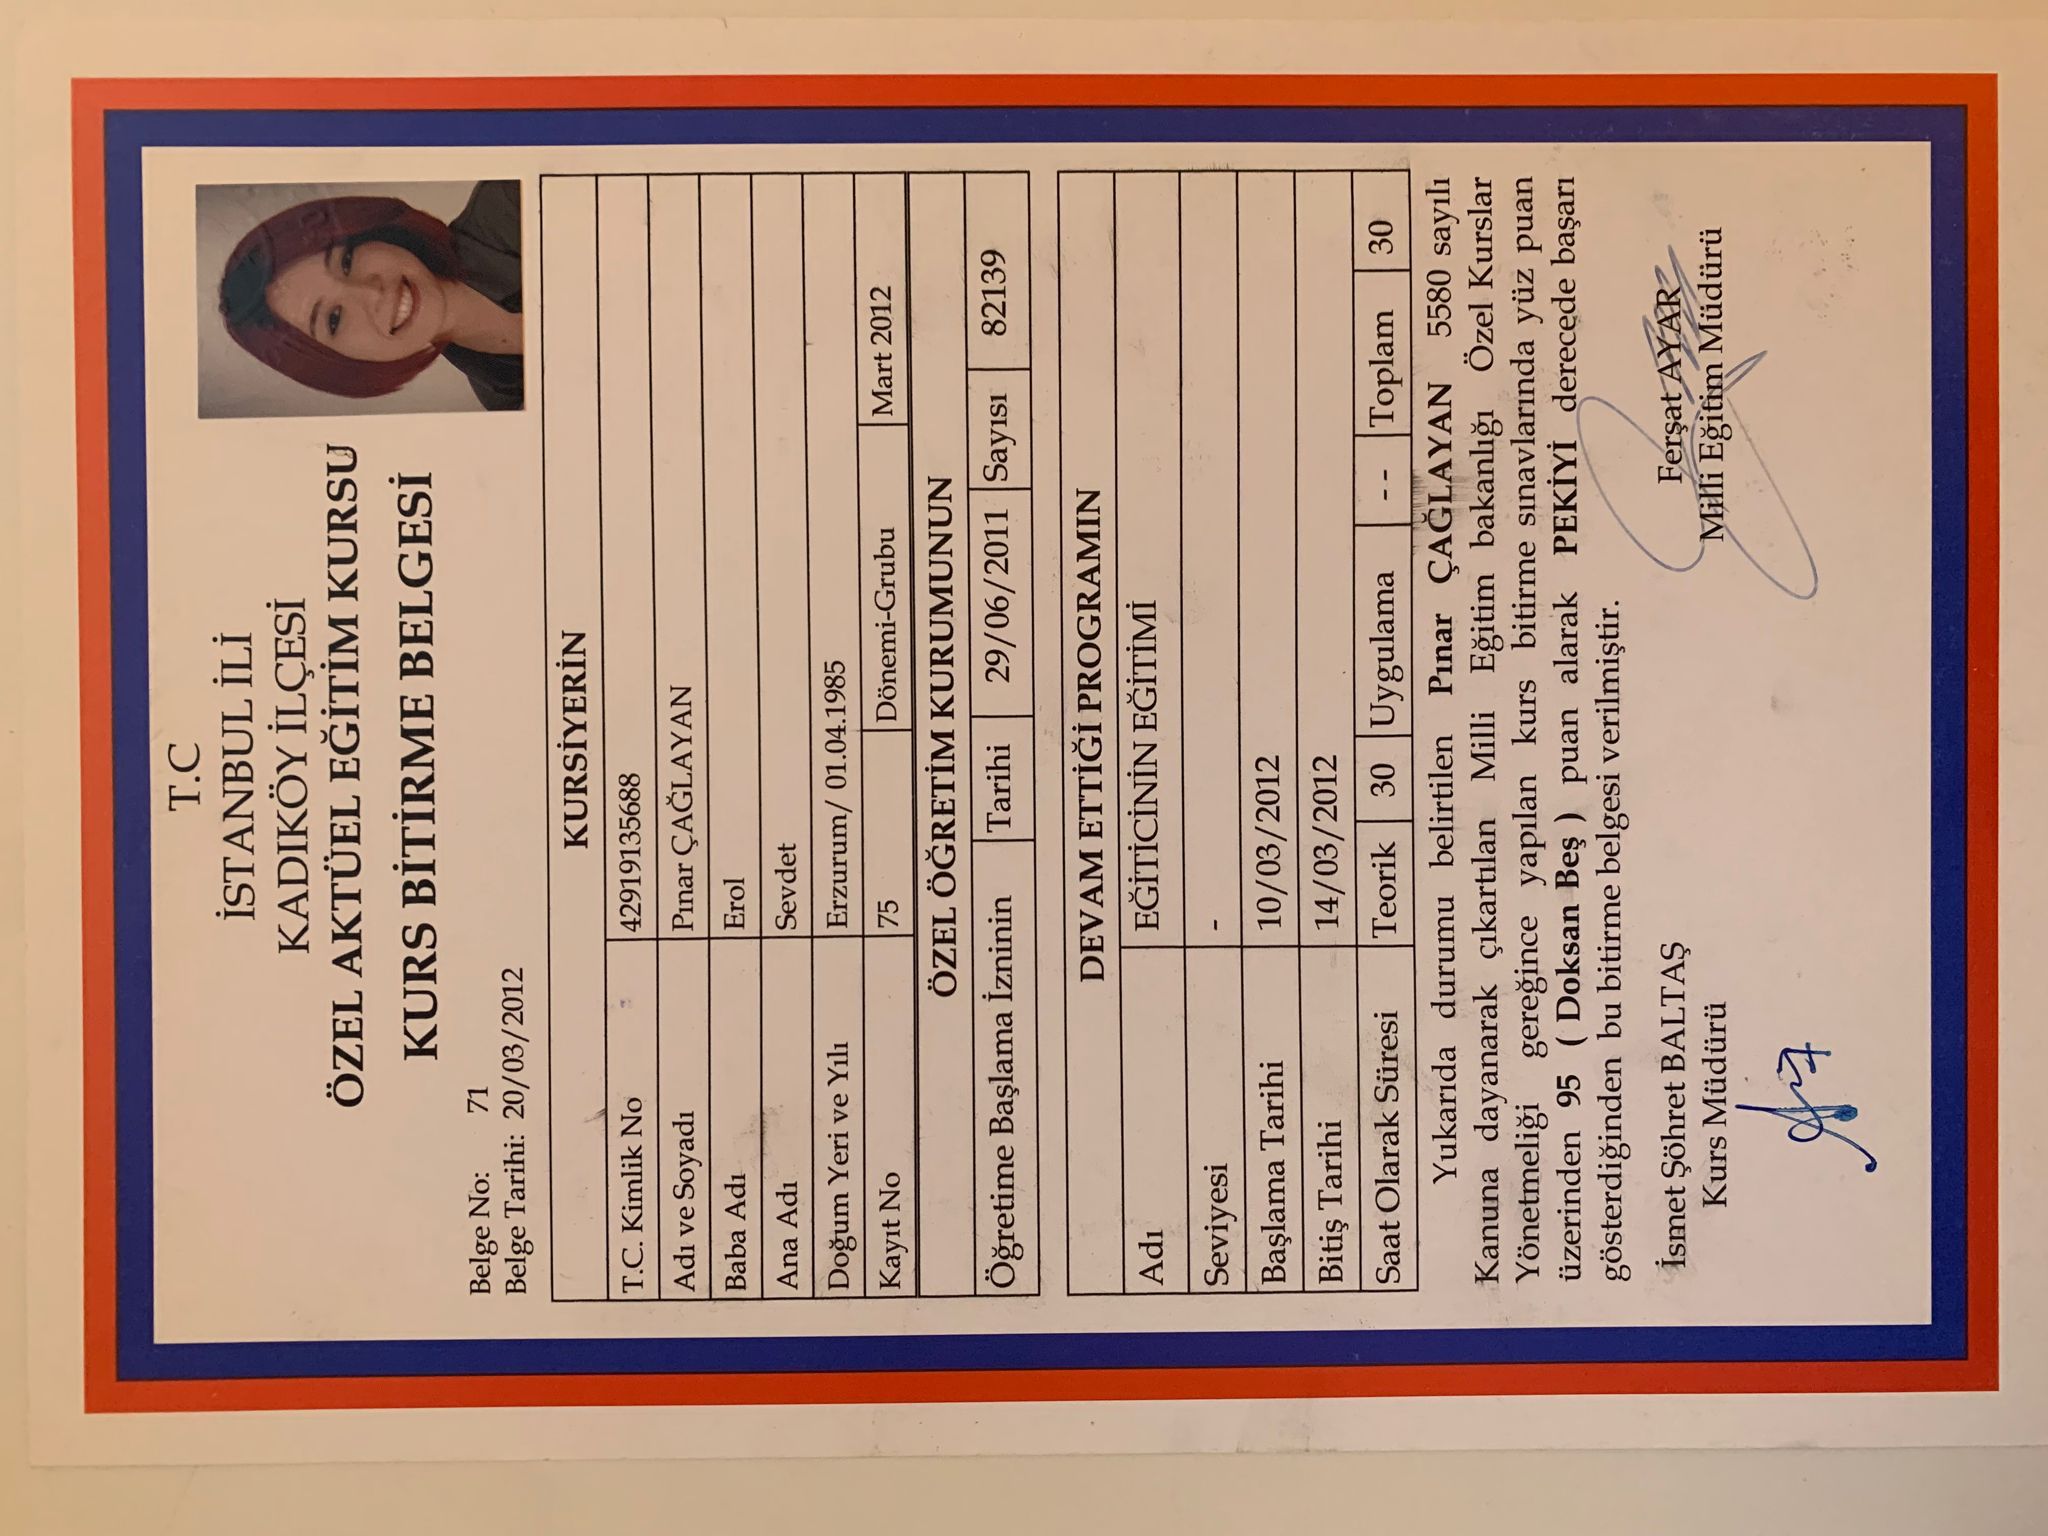 T.C
İSTANBUL İLİ
KADIKÖY İLÇESİ
ÖZEL AKTÜEL EĞİTİM KURSU
KURS BİTİRME BELGESİ
Belge No: 71
Belge Tarihi: 20/03/2012
KURSİYERİN
T.C. Kimlik No 42919135688
Adı ve Soyadı Pınar ÇAĞLAYAN
Baba Adı Erol
Ana Adı Sevdet
Doğum Yeri ve Yılı Erzurum/ 01.04.1985
Kayıt No 75 Dönemi-Grubu Mart 2012
ÖZEL ÖĞRETİM KURUMUNUN
Öğretime Başlama İzninin Tarihi 29/06/2011 Sayısı 82139
DEVAM ETTİĞİ PROGRAMIN
Adı EĞİTİCİNİN EĞİTİMİ
Seviyesi -
Başlama Tarihi 10/03/2012
Bitiş Tarihi 14/03/2012
Saat Olarak Süresi Teorik 30 Uygulama -- Toplam 30
Yukarıda durumu belirtilen Pınar ÇAĞLAYAN 5580 sayılı
Kanuna dayanarak çıkartılan Milli Eğitim bakanlığı Özel Kurslar
Yönetmeliği gereğince yapılan kurs bitirme sınavlarında yüz puan
üzerinden 95 ( Doksan Beş ) puan alarak PEKİYİ derecede başarı
gösterdiğinden bu bitirme belgesi verilmiştir.
İsmet Şöhret BALTAŞ
Kurs Müdürü
Ferşat AYAR
Milli Eğitim Müdürü